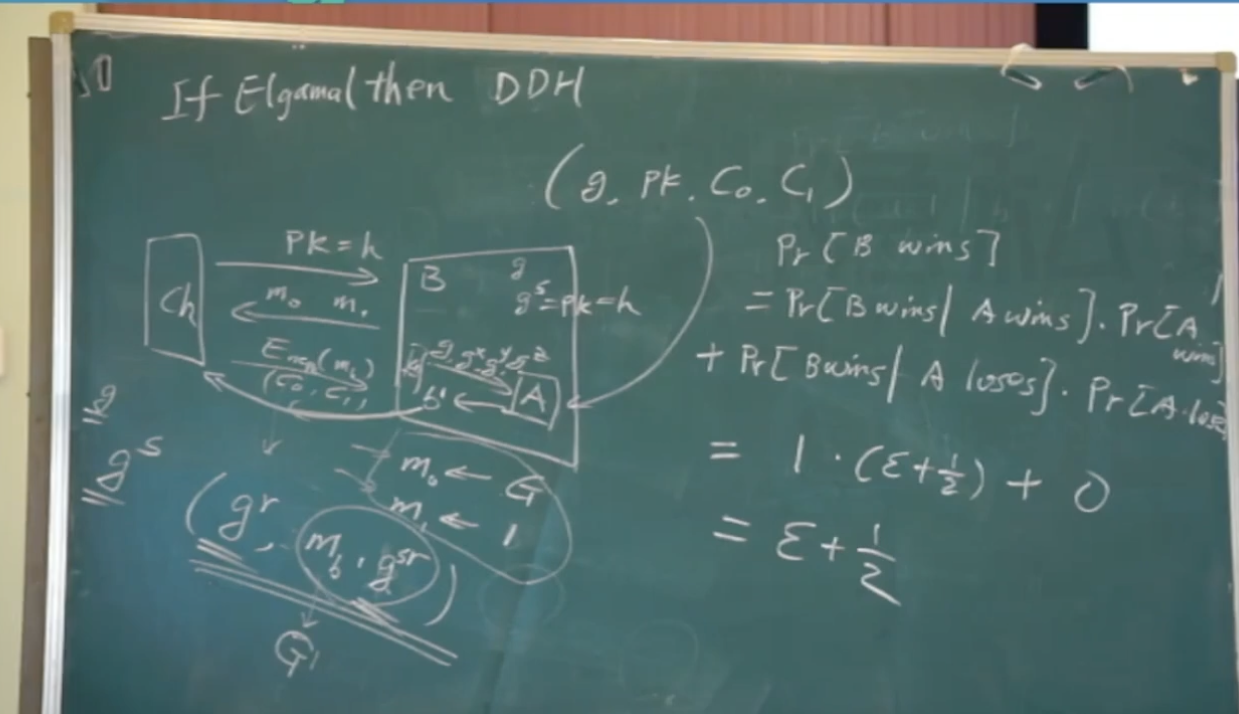 If Elgamal then DDH
(g, PK, C₀, C₁)
PK = h
Ch
m₀ m₁
(C₀, C₁)
B
g
g^s = PK = h
g, g^x, g^y, g^z
A
b'
m₀ ← G
m₁ ← 1
g
g^s
(g^r, m_b · g^sr)
G
Pr[B wins]
= Pr[B wins | A wins] · Pr[A wins]
+ Pr[B wins | A loses] · Pr[A loses
= 1 · (ε + 1/2) + 0
= ε + 1/2